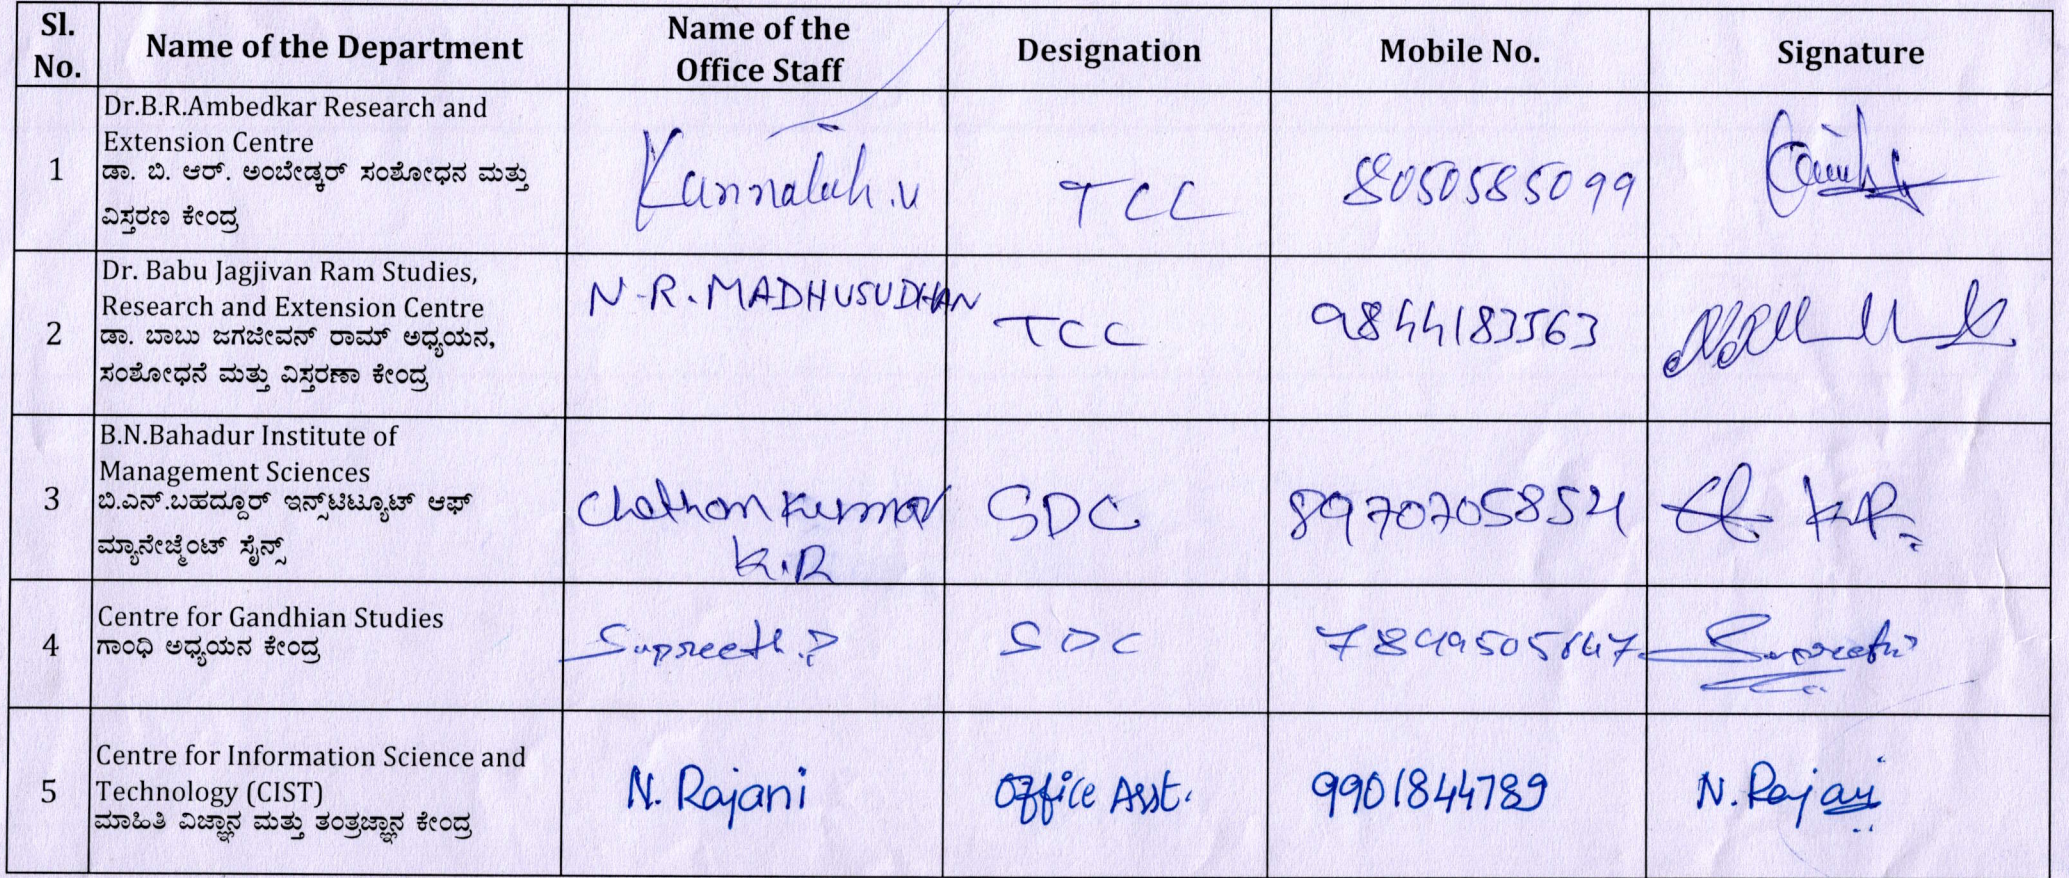 Sl. No. Name of the Department Name of the Office Staff Designation Mobile No. Signature
1
Dr.B.R.Ambedkar Research and
Extension Centre
ಡಾ. ಬಿ. ಆರ್. ಅಂಬೇಡ್ಕರ್ ಸಂಶೋಧನ ಮತ್ತು
ವಿಸ್ತರಣ ಕೇಂದ್ರ
TCC
8050585099
2
Dr. Babu Jagjivan Ram Studies,
Research and Extension Centre
ಡಾ. ಬಾಬು ಜಗಜೀವನ್ ರಾಮ್ ಅಧ್ಯಯನ,
ಸಂಶೋಧನೆ ಮತ್ತು ವಿಸ್ತರಣಾ ಕೇಂದ್ರ
N.R. MADHUSUDHAN
TCC
9844183563
3
B.N.Bahadur Institute of
Management Sciences
ಬಿ.ಎನ್.ಬಹದ್ದೂರ್ ಇನ್ಸ್‌ಟಿಟ್ಯೂಟ್ ಆಫ್
ಮ್ಯಾನೇಜ್ಮೆಂಟ್ ಸೈನ್ಸ್
Chethan Kumar
K.R
SDC
8970705854
4
Centre for Gandhian Studies
ಗಾಂಧಿ ಅಧ್ಯಯನ ಕೇಂದ್ರ
Supreeth.
SDC
Supreeth
5
Centre for Information Science and
Technology (CIST)
ಮಾಹಿತಿ ವಿಜ್ಞಾನ ಮತ್ತು ತಂತ್ರಜ್ಞಾನ ಕೇಂದ್ರ
N. Rajani
Office Asst.
9901844789
N. Rajani